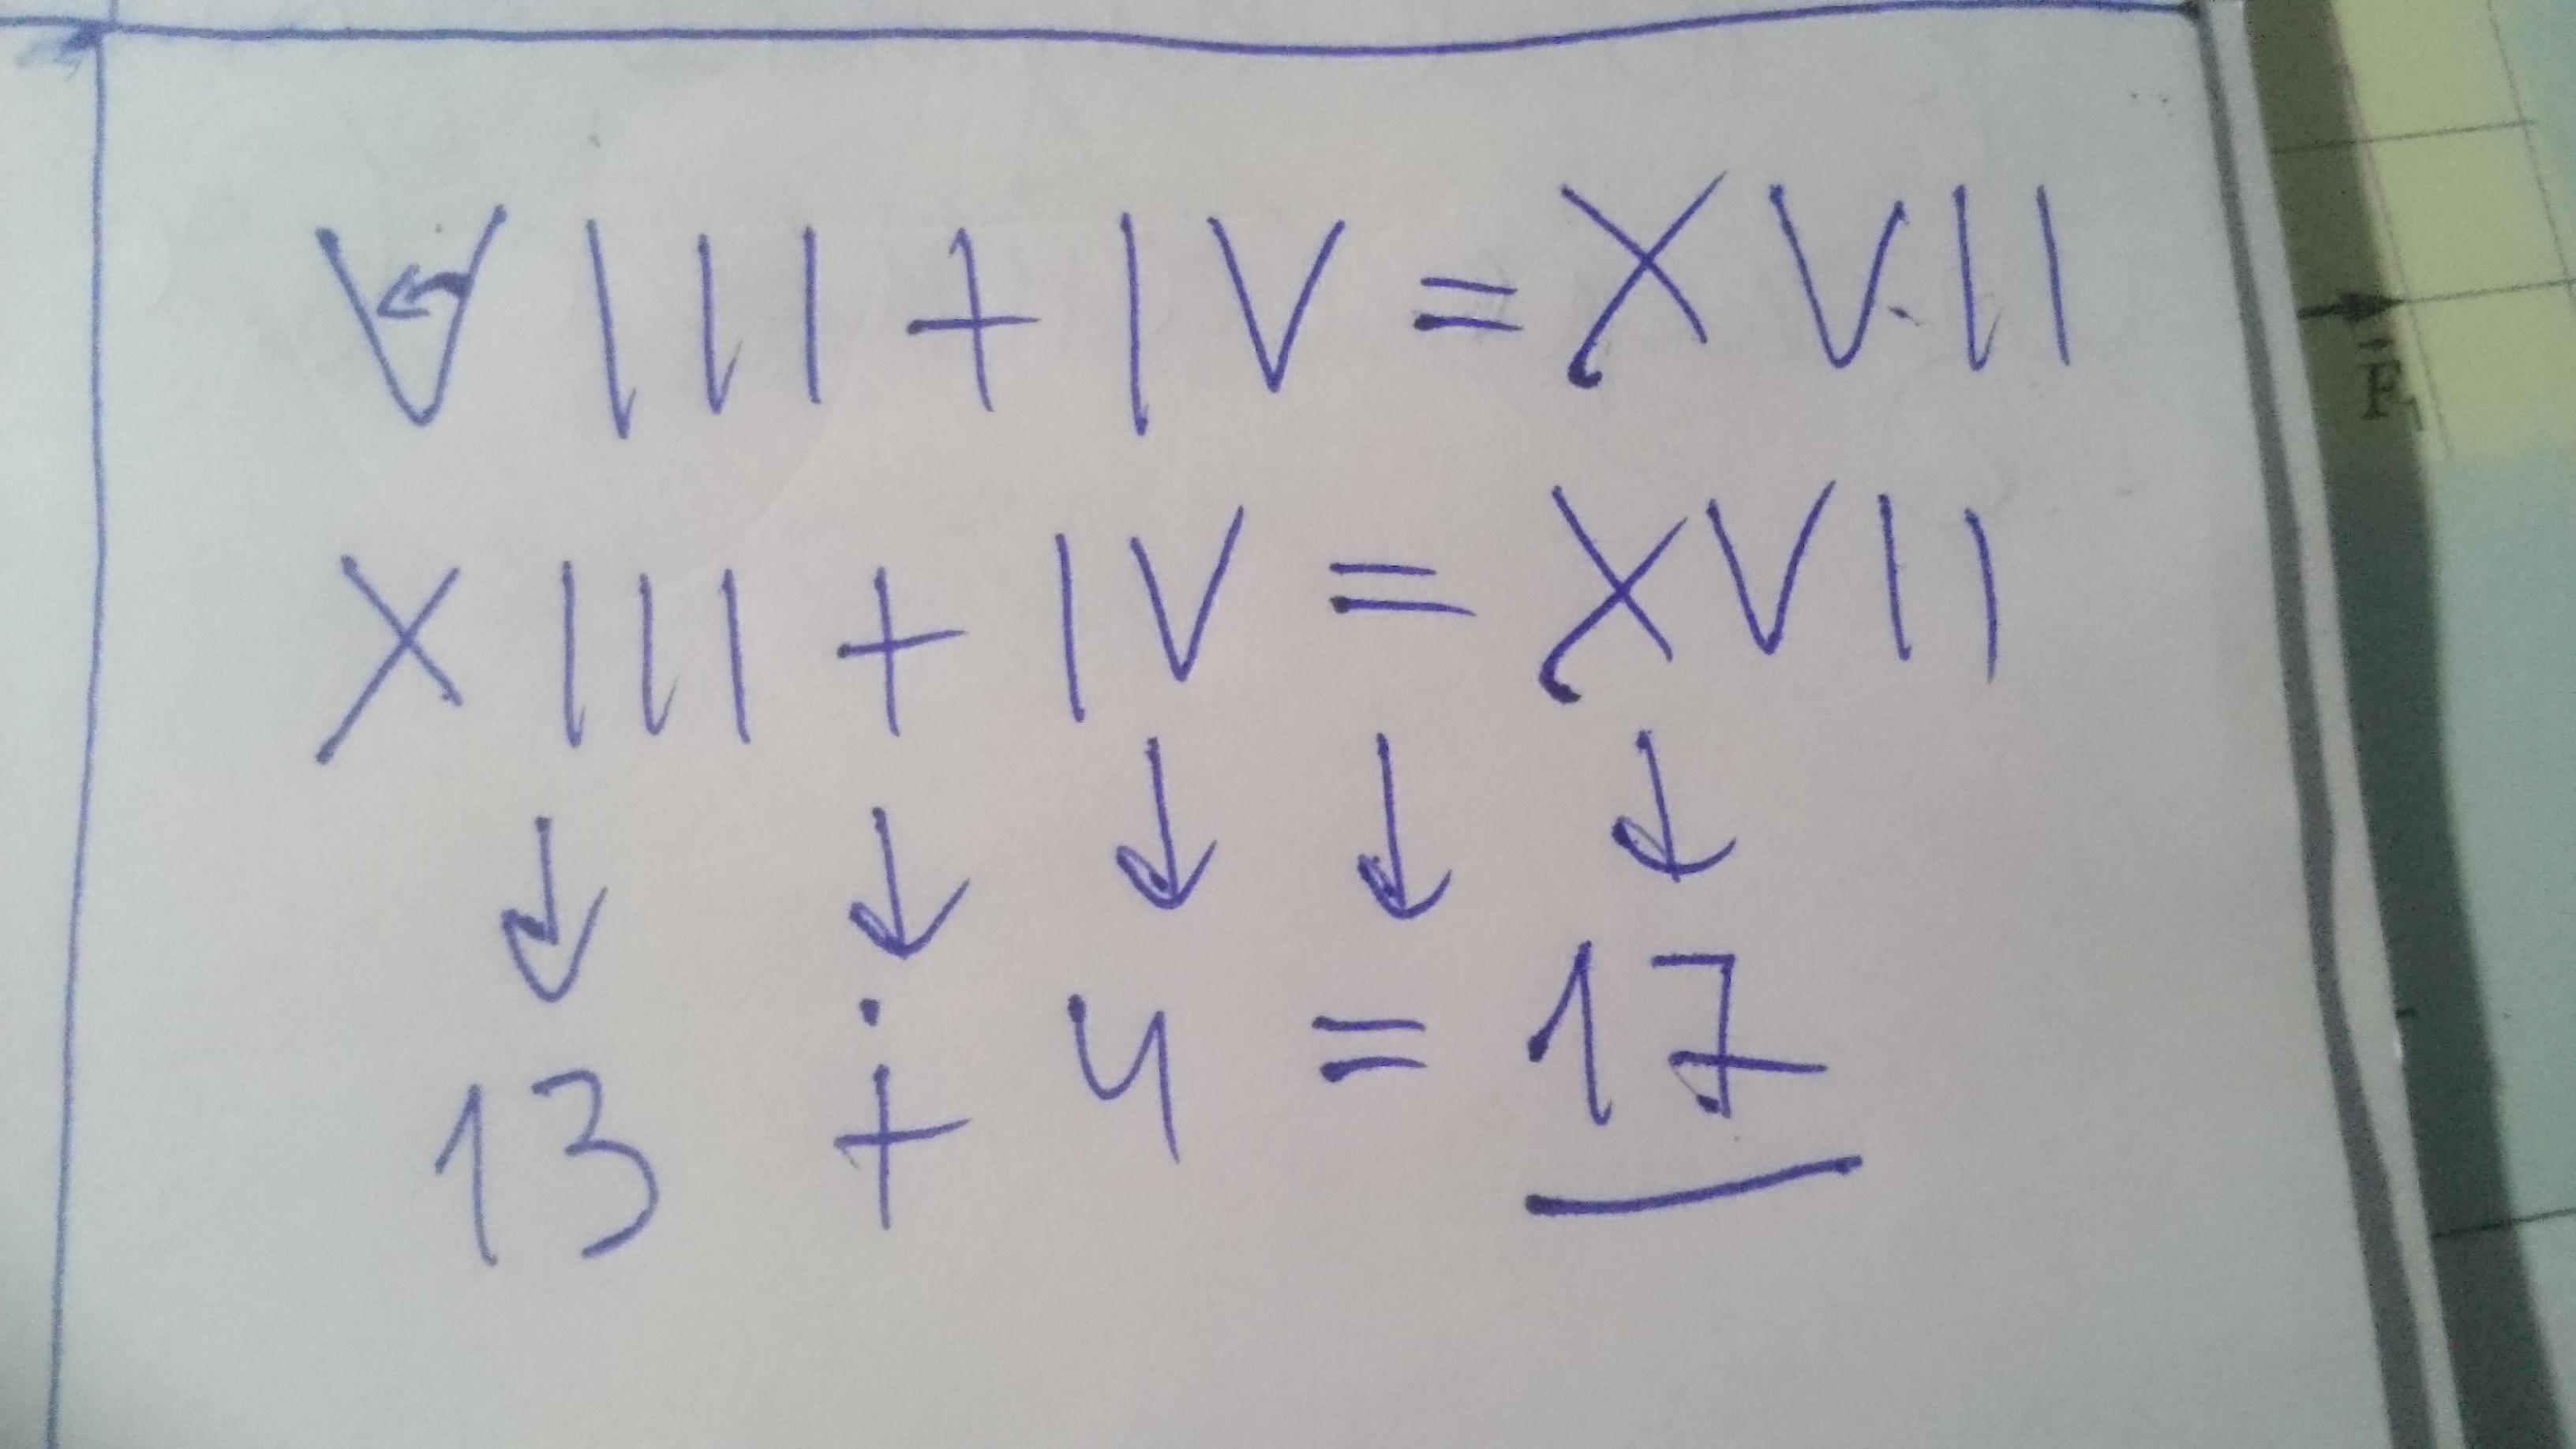 VIII + IV = XVII
XIII + IV = XVII
↓ ↓ ↓ ↓ ↓
13 + 4 = 17
F₁